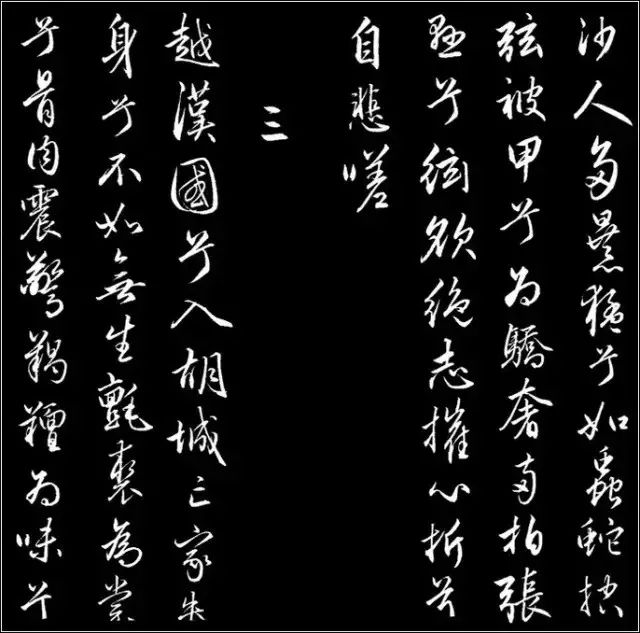 沙人多暴猛兮如蟲蛇控
弦被甲兮为驕奢两拍張
兮絃欲絶志摧心折兮
自悲嗟
三
越漢國兮入胡城亡家失
身兮不如無生氈裘為裳
兮骨肉震驚羯羶为味兮